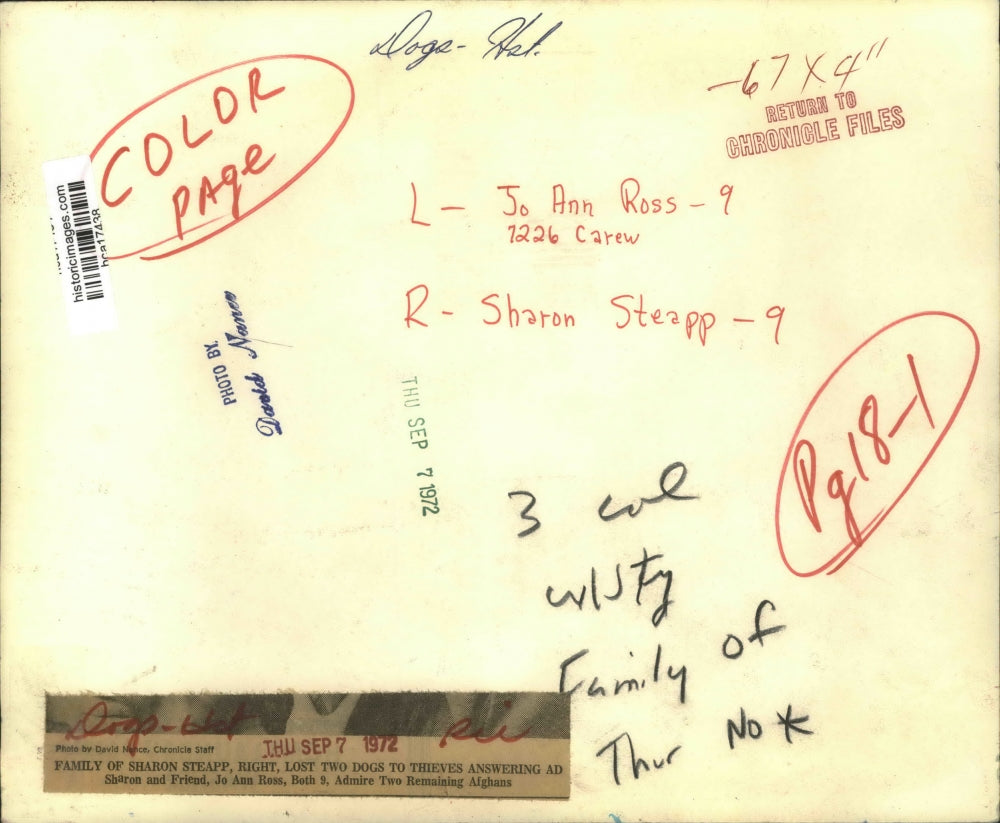 Dogs - Hst.
-67 X 4"
RETURN TO
CHRONICLE FILES
COLOR
PAge
historicimages.com
hca17438
L - Jo Ann Ross - 9
1226 Carew
R - Sharon Steapp - 9
PHOTO BY:
David Nance
THU SEP 7 1972
Pg 18-1
3 col
w/sty
Family of
Thur No *
Dogs - Hst
Photo by David Nance, Chronicle Staff
THU SEP 7 1972
FAMILY OF SHARON STEAPP, RIGHT, LOST TWO DOGS TO THIEVES ANSWERING AD
Sharon and Friend, Jo Ann Ross, Both 9, Admire Two Remaining Afghans